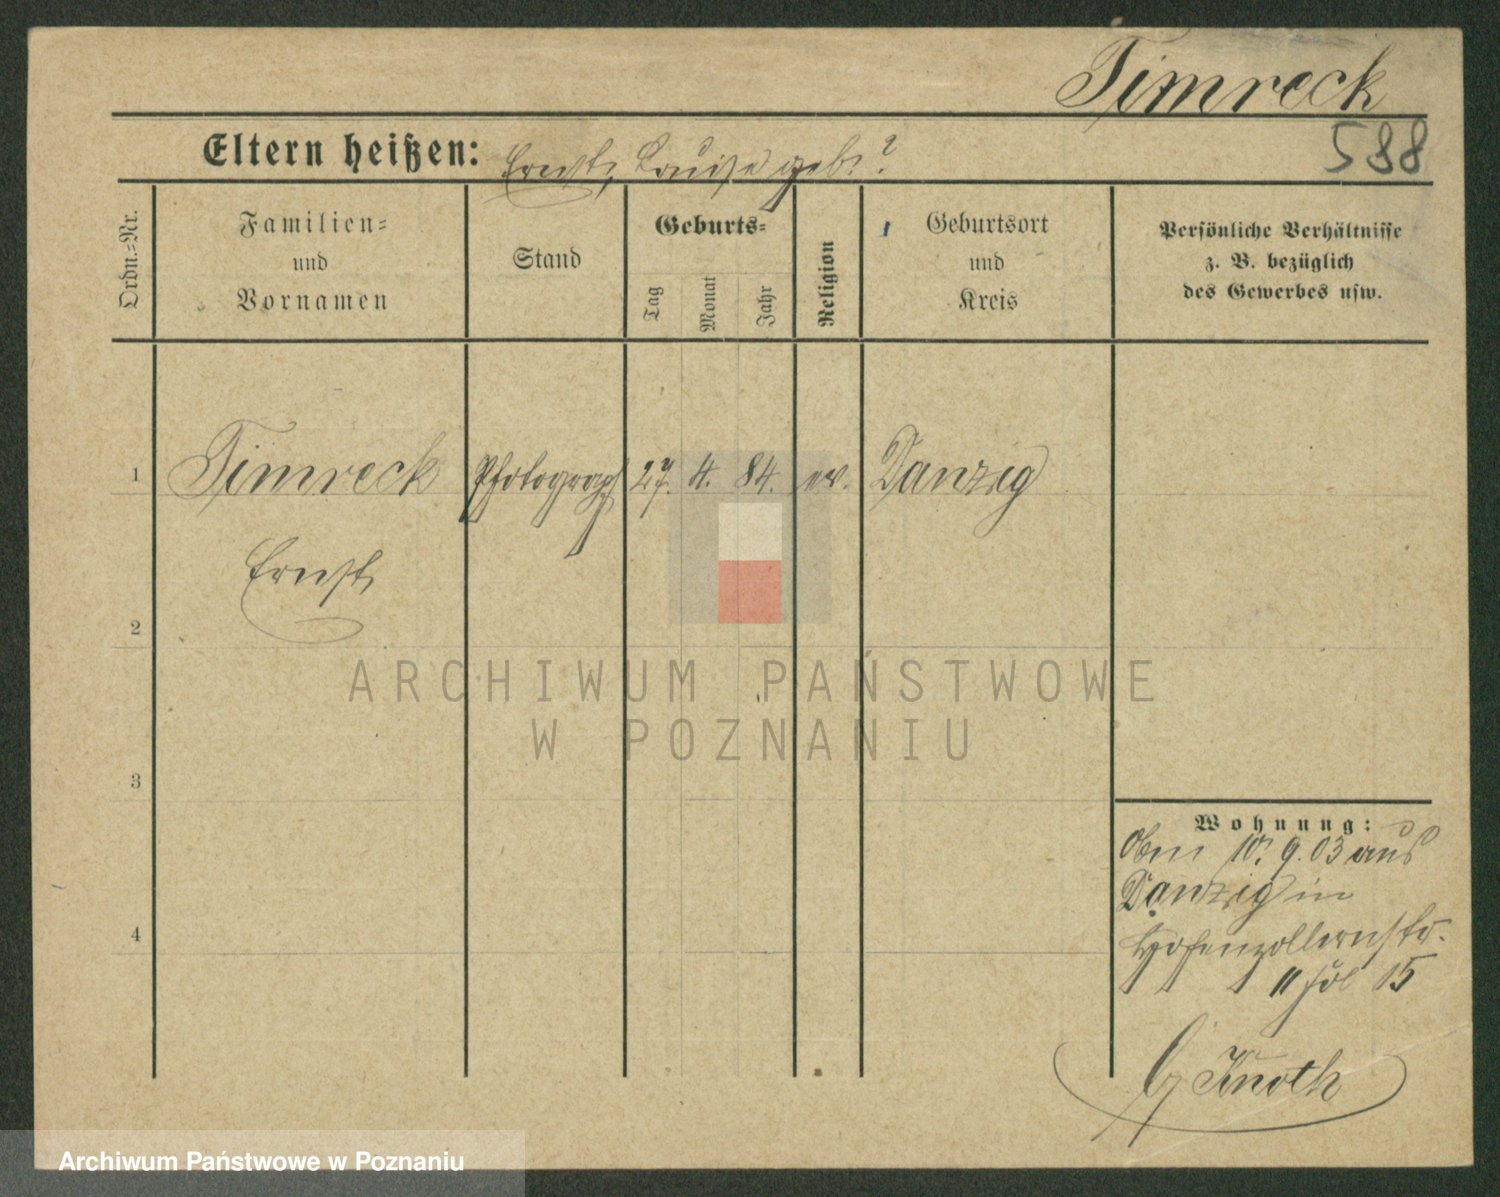 Timreck
588
Eltern heißen: Ernst, Louise geb. ?
Ordn.-Nr.
Familien-
und
Vornamen
Stand
Geburts-
Tag
Monat
Jahr
Religion
Geburtsort
und
Kreis
Persönliche Verhältnisse
z. B. bezüglich
des Gewerbes usw.
1 Timreck Photograph 27. 4. 84. ev. Danzig
Ernst
2
3
4
Wohnung:
10. 9. 03 aus
Danzig in
Hohenzollernstr.
15
Knoth
ARCHIWUM PAŃSTWOWE
W POZNANIU
Archiwum Państwowe w Poznaniu